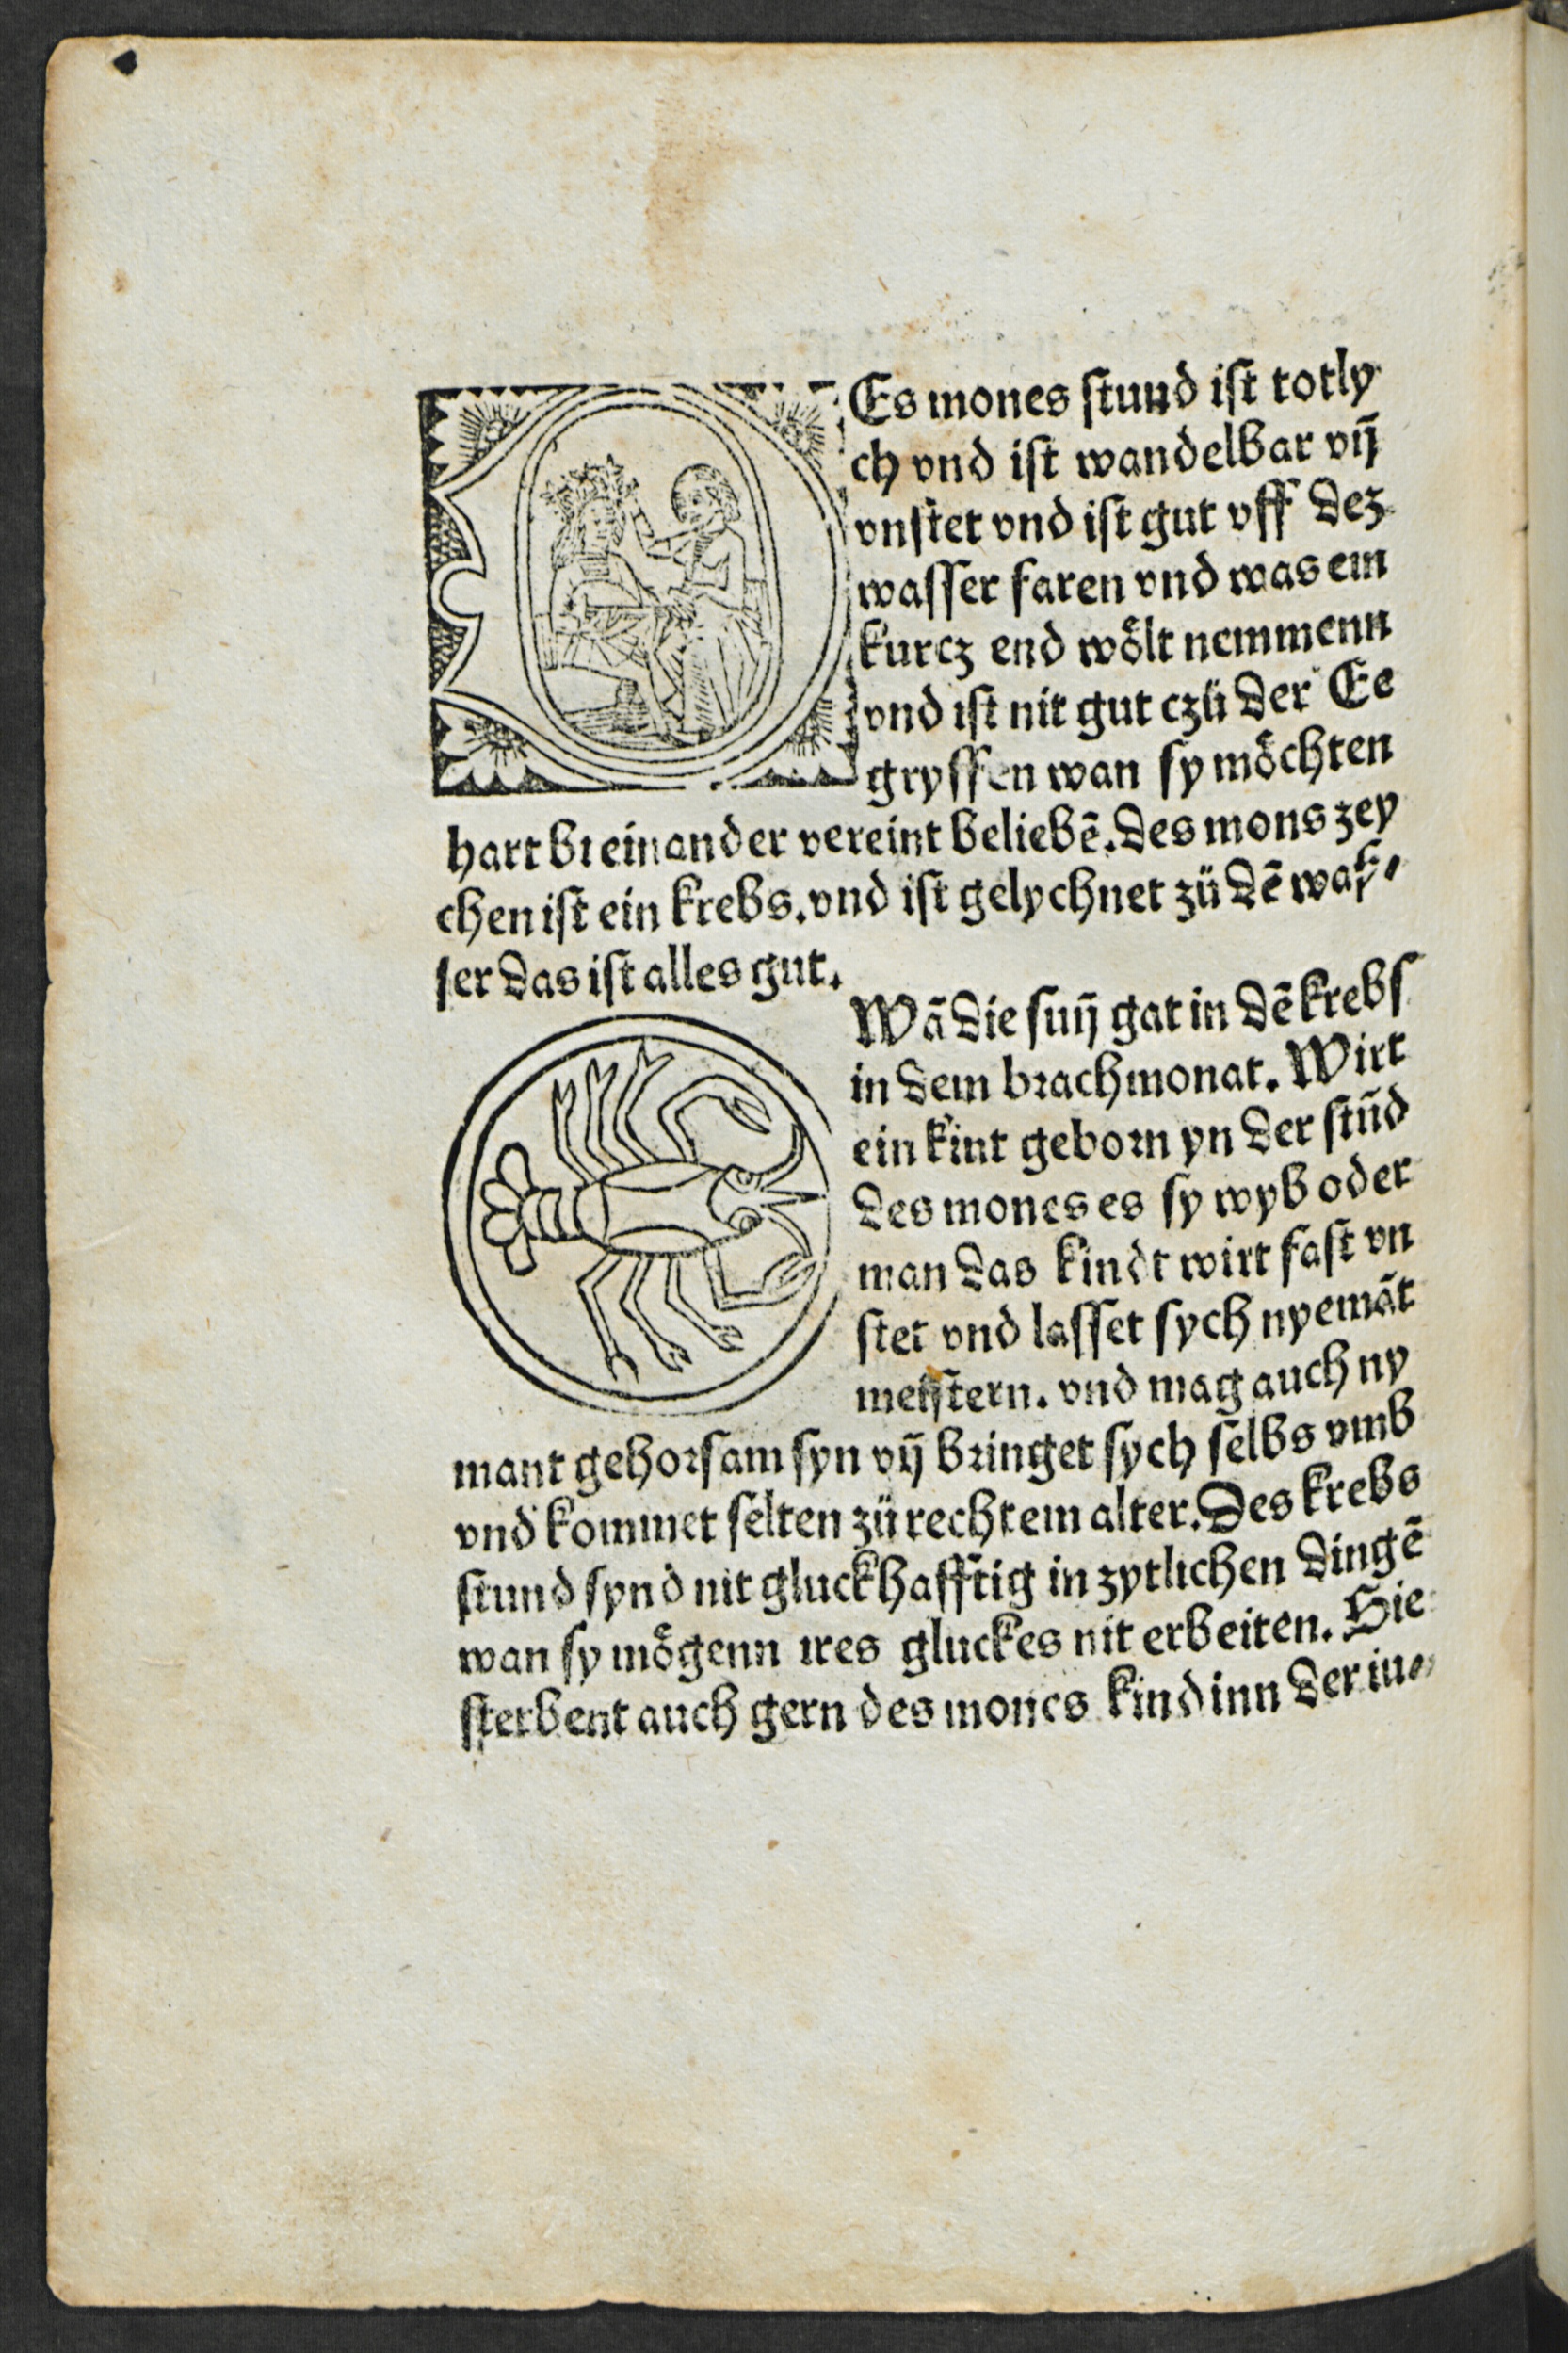 DEs mones ſtund iſt totly
ch vnd iſt wandelbar vñ
vnſtet vnd iſt gut vff dez
waſſer faren vnd was ein
kurcz end wőlt nemmenn
vnd iſt nit gut czü der Ee
gryffen wan ſy mőchten
hart bi einander vereint beliebē. des mons zey
chen iſt ein krebs. vnd iſt gelychnet zü dē waſ⸗
ſer das iſt alles gut.
Wā die ſuñ gat in dē krebſ
in dem brachmonat. Wirt
ein kint geborn yn der ſtūd
des mones es ſy wyb oder
man das kindt wirt faſt vn
ſtet vnd laſſet ſych nyemāt
meiſtern. vnd mag auch ny
mant gehorſam ſyn vñ bringet ſych ſelbs vmb
vnd kommet ſelten zü rechtem alter. Des krebs
ſtund ſynd nit gluckhafftig in zytlichen dingē
wan ſy mőgenn ires gluckes nit erbeiten. Sie
ſterbent auch gern des mones kind inn der iu⸗